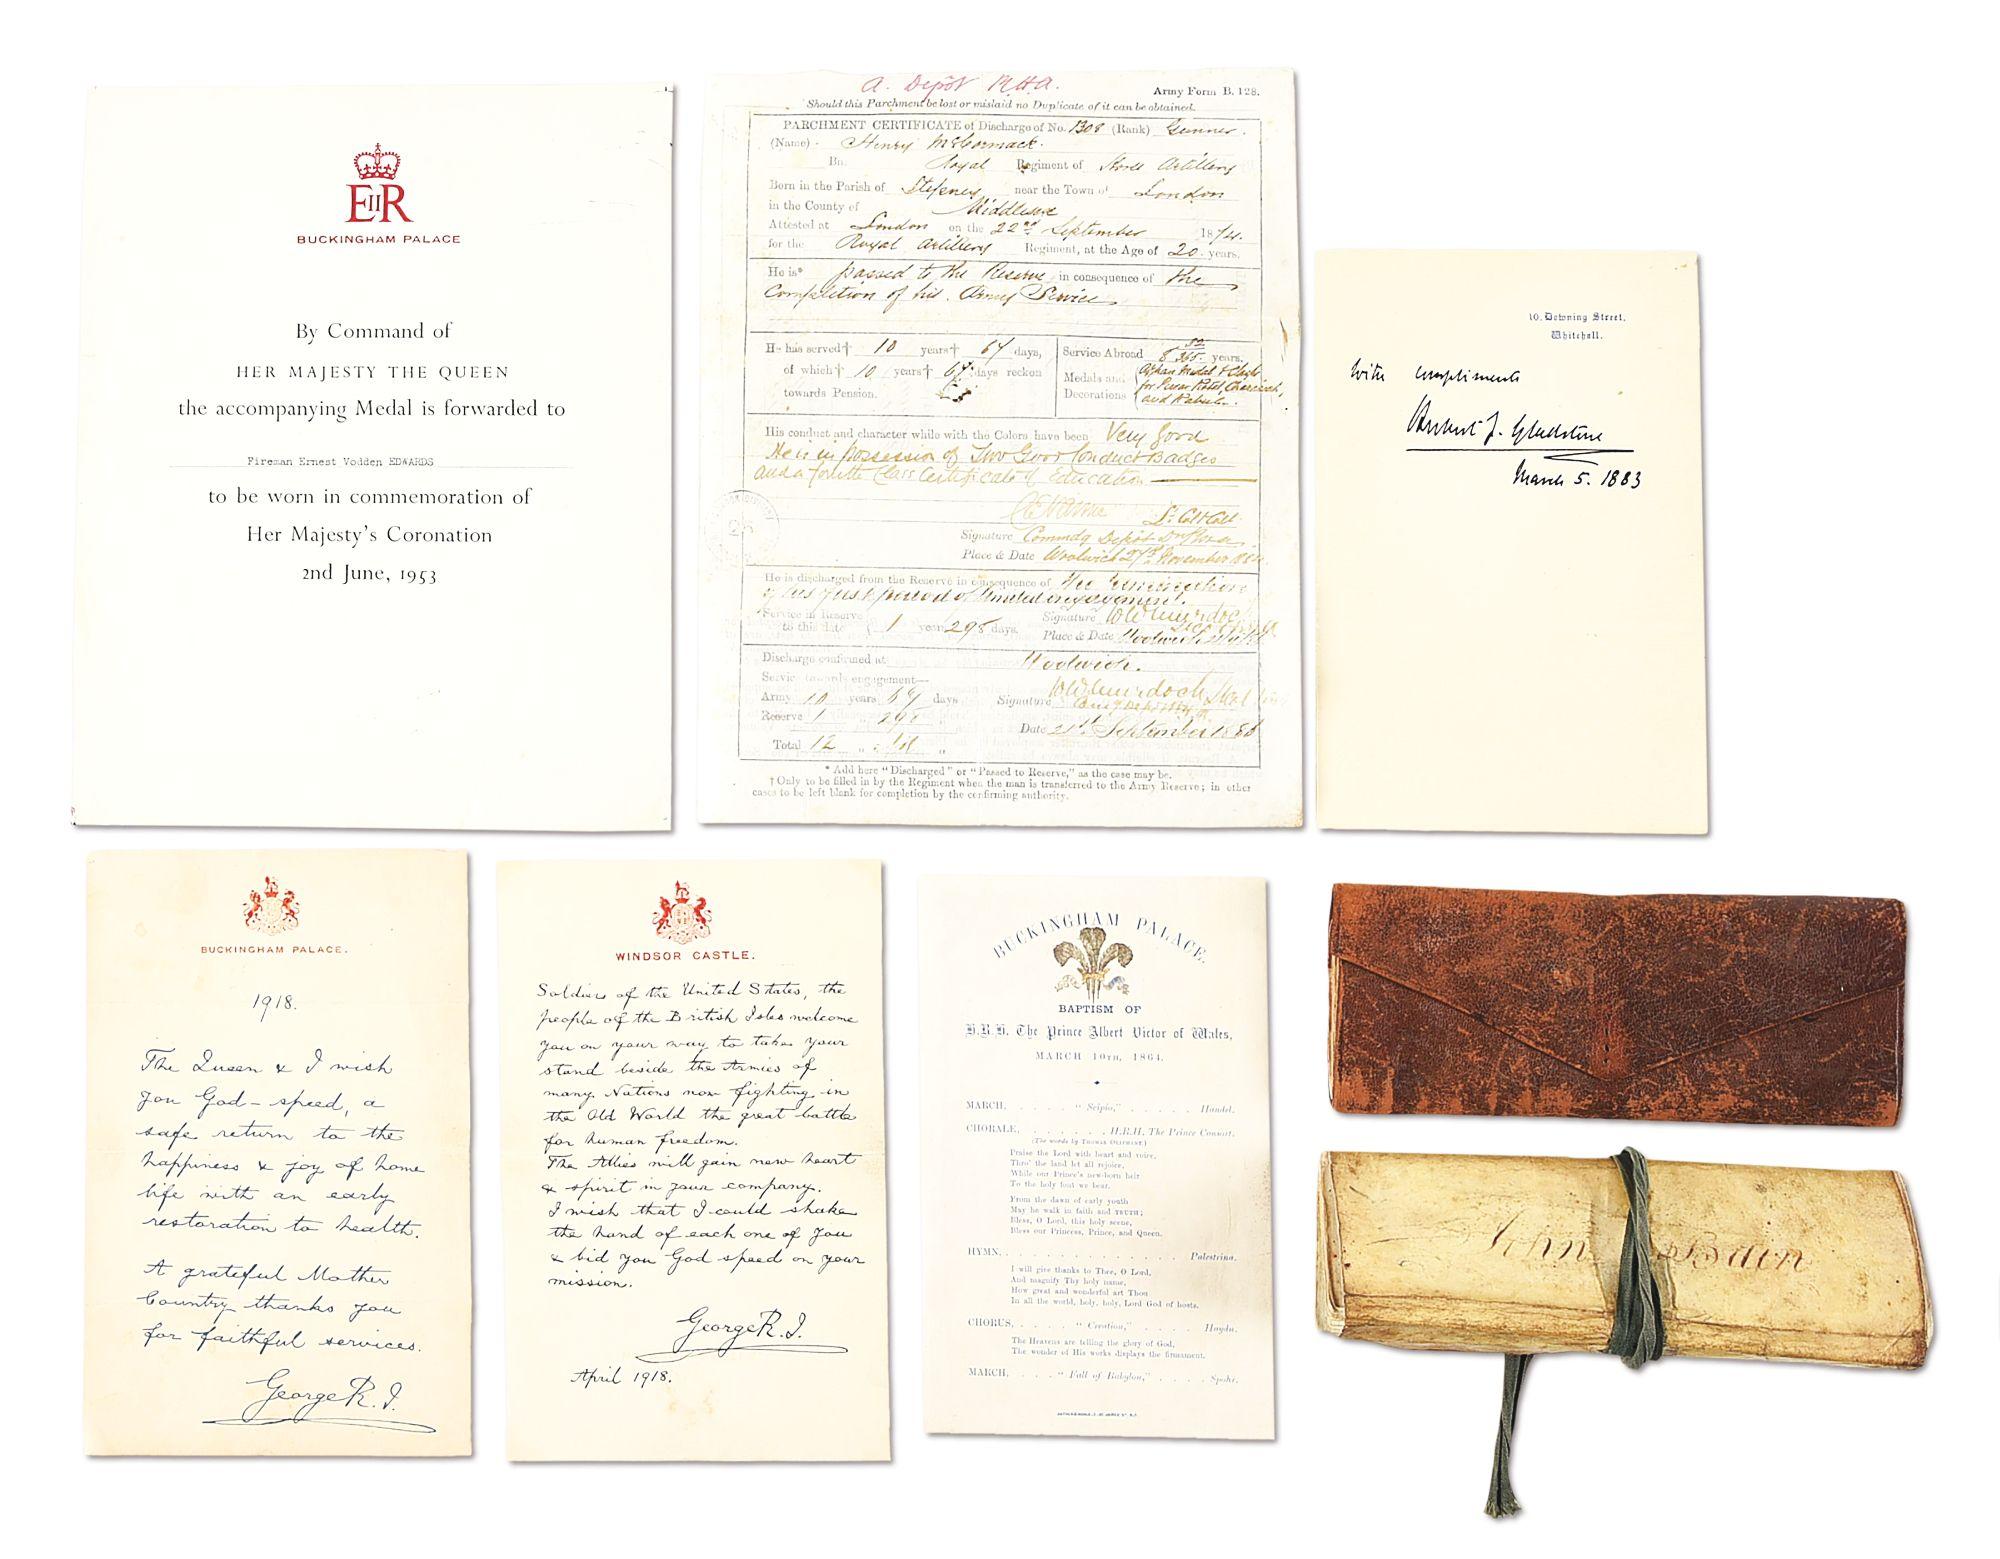 EIIR
BUCKINGHAM PALACE
By Command of
HER MAJESTY THE QUEEN
the accompanying Medal is forwarded to
Fireman Ernest Vodden EDWARDS
to be worn in commemoration of
Her Majesty's Coronation
2nd June, 1953
A. Depôt R.H.A.
Army Form B. 128.
Should this Parchment be lost or mislaid no Duplicate of it can be obtained.
PARCHMENT CERTIFICATE of Discharge of No. 1308 (Rank) Gunner.
(Name) Henry McCormack.
Bn. Royal Regiment of Horse Artillery
Born in the Parish of Stepney near the Town of London
in the County of Middlesex
Attested at London on the 22nd September 1874.
for the Royal Artillery Regiment, at the Age of 20 years.
He is* passed to the Reserve in consequence of the
completion of his Army Service
He has served† 10 years† 67 days,
of which† 10 years† 67 days reckon
towards Pension.
Service Abroad 8 365 years.
Medals and Decorations Afghan Medal & Clasps
for Charasiah,
and Kabul.
His conduct and character while with the Colors have been Very Good
He is in possession of Two Good Conduct Badges
and a fourth Class Certificate of Education
Lt. Col
Signature Commdg Depôt
Place & Date Woolwich 27th November 1884
He is discharged from the Reserve in consequence of the termination
of his first period of limited engagement.
Service in Reserve
to this date 1 year 298 days.
Signature W W Murdoch
Place & Date Woolwich
Discharge confirmed at Woolwich.
Service towards engagement—
Army 10 years 67 days
Reserve 1 " 298 "
Total 12 " "
Signature W W Murdoch
Date 21st September 1886
* Add here "Discharged" or "Passed to Reserve," as the case may be.
† Only to be filled in by the Regiment when the man is transferred to the Army Reserve; in other
cases to be left blank for completion by the confirming authority.
10, Downing Street,
Whitehall.
With compliments
Herbert J. Gladstone
March 5. 1883
BUCKINGHAM PALACE.
1918.
The Queen & I wish
you God-speed, a
safe return to the
happiness & joy of home
life with an early
restoration to health.
A grateful Mother
Country thanks you
for faithful services.
George R. I.
WINDSOR CASTLE.
Soldiers of the United States, the
people of the British Isles welcome
you on your way to take your
stand beside the Armies of
many Nations now fighting in
the Old World the great battle
for human freedom.
The Allies will gain new heart
& spirit in your company.
I wish that I could shake
the hand of each one of you
& bid you God speed on your
mission.
George R. I.
April 1918.
BUCKINGHAM PALACE.
BAPTISM OF
H.R.H. The Prince Albert Victor of Wales,
MARCH 10TH, 1864.
MARCH, . . . . . "Scipio," . . . . . Handel.
CHORALE, . . . . . . . H.R.H. The Prince Consort.
(The words by THOMAS OLIPHANT.)
Praise the Lord with heart and voice,
Thro' the land let all rejoice,
While our Prince's new-born heir
To the holy font we bear.
From the dawn of early youth
May he walk in faith and TRUTH;
Bless, O Lord, this holy scene,
Bless our Princess, Prince, and Queen.
HYMN, . . . . . . . . . . . . . . Palestrina.
I will give thanks to Thee, O Lord,
And magnify Thy holy name,
How great and wonderful art Thou
In all the world, holy, holy, Lord God of hosts.
CHORUS, . . . . . "Creation," . . . . . Haydn.
The Heavens are telling the glory of God,
The wonder of His works displays the firmament.
MARCH, . . . . "Fall of Babylon," . . . . . Spohr.
John Bain